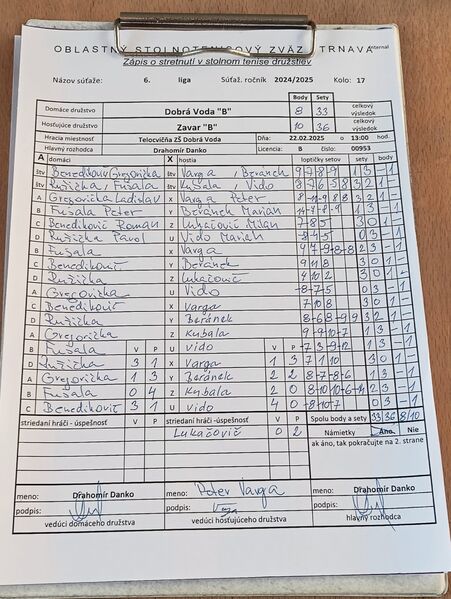 OBLASTNÝ STOLNOTENISOVÝ ZVÄZ TRNAVA
Internal
Zápis o stretnutí v stolnom tenise družstiev
Názov súťaže: 6. liga Súťaž. ročník 2024/2025 Kolo: 17
Body Sety
Domáce družstvo Dobrá Voda "B" 8 33 celkový výsledok
Hosťujúce družstvo Zavar "B" 10 36 celkový výsledok
Hracia miestnosť Telocvičňa ZŠ Dobrá Voda Dňa: 22.02.2025 o 13:00 hod.
Hlavný rozhodca Drahomír Danko Licencia: B číslo: 00953
A domáci X hostia loptičky setov sety body
štv Benedikovič Gregorička štv Varga, Beránek 9 7 8 9 1 3 - 1
štv Ružička, Fušala štv Kubala, Vido
A Gregorička Ladislav X Varga Peter
B Fušala Peter Y Beránek Marian
C Benedikovič Roman Z Lukačovič Milan 7 8 5 3 0 1 -
D Ružička Pavol U Vido Marian
B Fušala X Varga
C Benedikovič Y Beránek 9 11 8 3 0 1 -
D Ružička Z Lukačovič 4 10 2 3 0 1 -
A Gregorička U Vido
C Benedikovič X Varga 7 10 8 3 0 1 -
D Ružička Y Beránek
A Gregorička Z Kubala
B Fušala V P U Vido V P
D Ružička 3 1 X Varga 1 3 7 1 10 3 0 1 -
A Gregorička 1 3 Y Beránek 2 2
B Fušala 0 4 Z Kubala 2 0
C Benedikovič 3 1 U Vido 4 0
striedaní hráči - úspešnosť V P striedaní hráči - úspešnosť V P Spolu body a sety 33 36 8/10
Lukačovič 0 2 Námietky Áno. Nie
ak áno, tak pokračujte na 2. strane
meno: Drahomír Danko meno: Peter Varga meno: Drahomír Danko
podpis: podpis: podpis:
vedúci domáceho družstva vedúci hosťujúceho družstva hlavný rozhodca